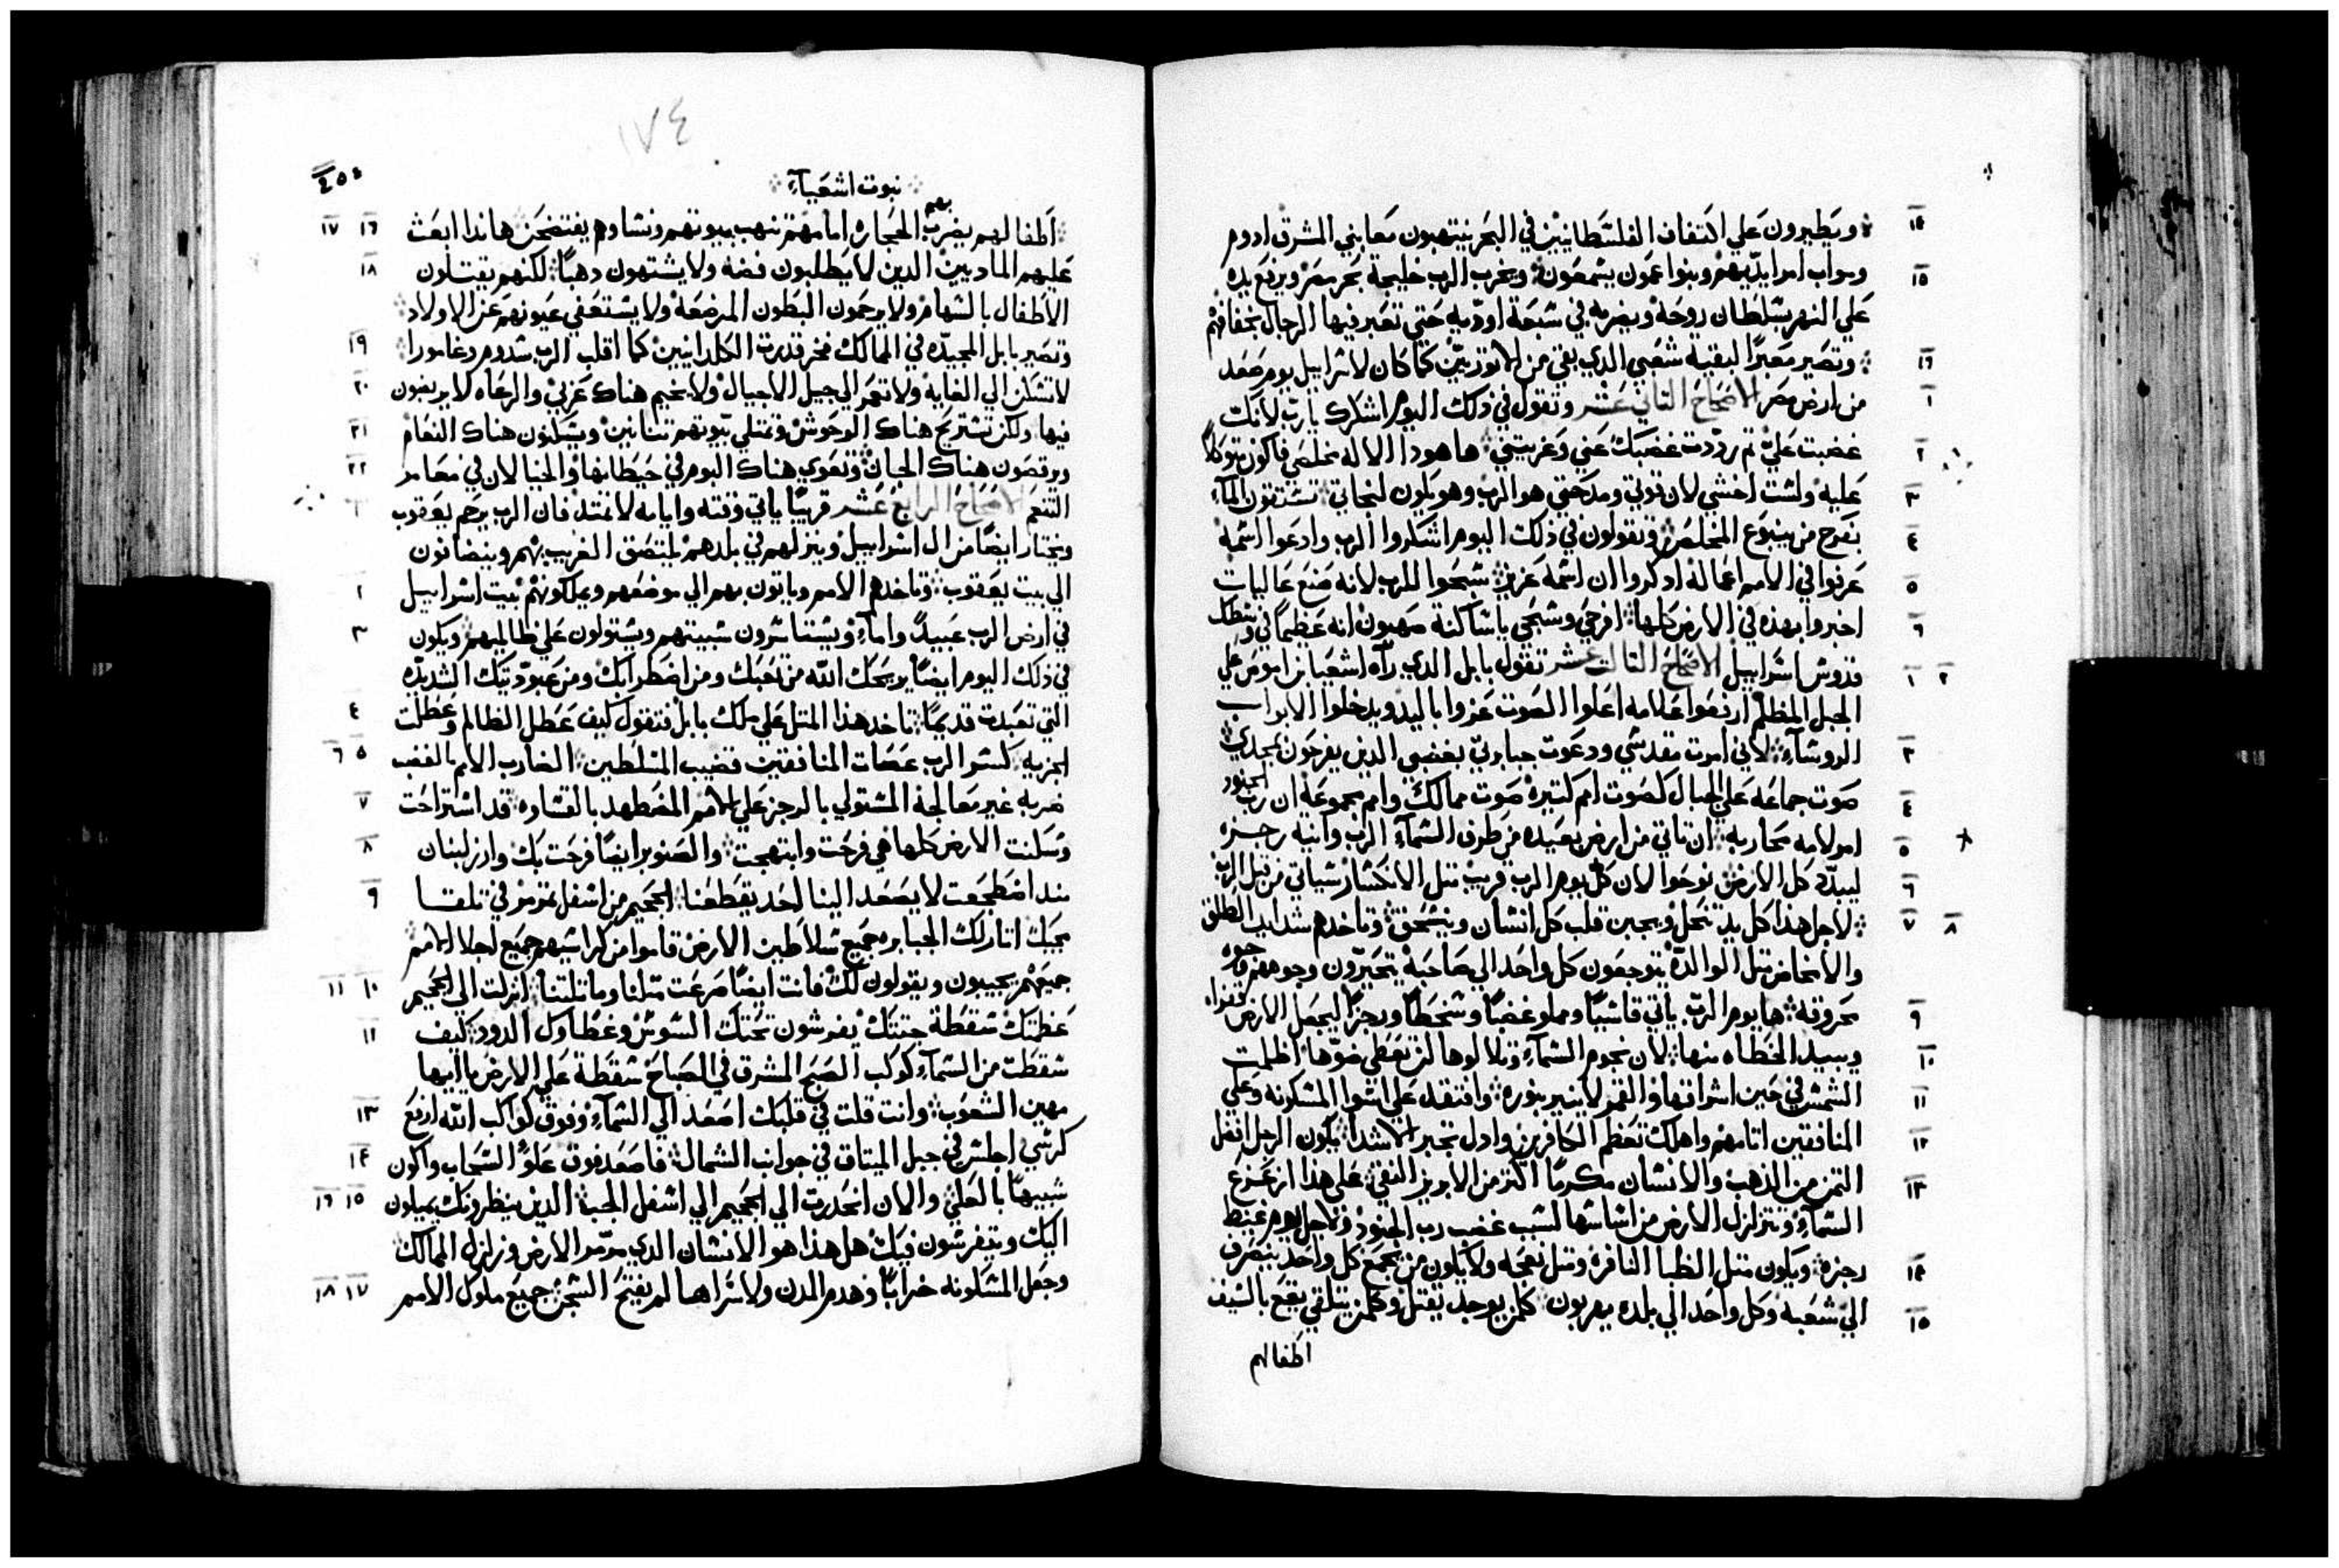 ١٤ ويطيرون على اكتفاف الفلسطانيين في البحر ينتهبون معًا بني المشرق ادوم
١٥ ومواب امر ايديهم وبنوا عمون يسمعون ويخرب الرب خليجة بحر مصر ويرفع يده
على النهر بسلطان روحه ويضربه في سبعة اوديه حتي تعبر فيها الرجال بخفافهم
١٦ وتصير معبرًا لبقية شعبي الدي بقي من الاتوريين كما كان لاسراييل يوم صعد
١ من ارض مصر الاصحاح التاني عشر وتقول في ذلك اليوم اشكرك يا رب لانك
٢ غضبت علي تم رددت غضبك عني وعزيتني هاهودا الاله مخلصي فاكون متوكلاً
٣ عليه ولست اخشي لان قوتي ومدحتي هو الرب وهو يكون لنجاتي تستقون المآء
٤ بفرح من ينبوع المخلص وتقولون في ذلك اليوم اشكروا الرب وادعوا اسمه
٥ عرفوا في الامم اعماله ادكروا ان اسمه عزيز سبحوا للرب لانه صنع عاليات
٦ اخبروا بهذه في الارض كلها افرحي وسبحي يا ساكنة صهيون انه عظيم في وسطك
١ ٢ قدوس اسراييل الاصحاح التالت عشر تقول بابل الدي رآه اشعيا بن اموص علي
الجبل المظلم ارفعوا علامه اعلوا الصوت عزوا باليد ويدخلوا الابواب
٣ الروسآء لاني امرت مقدسي ودعوت جبابرتي بغضبي الدين يفرحون بمجدي
٤ صوت جماعه على الجبال كصوت امم كتيره صوت ممالك وامم مجموعه ان رب الجنود
٥ امر لامه محاربه ان تاتي من ارض بعيده من طرف السمآء الرب وآنية رجزه
٦ ليبدد كل الارض نوحوا لان كل يوم الرب قريب متل الانكسار سياتي من قبل الرب
٧ ٨ لاجل هذا كل يد تنحل ويجبن قلب كل انسان وينسحق وتاخدهم شدايد الطلق
والامخاض متل الوالدة يتوجعون كل واحد الى صاحبه يتحيرون وجوههم وجوه
٩ محروقه ها يوم الرب ياتي قاسيًا ومملو غضبًا وسخطًا ورجزًا ليجعل الارض قفرا
١٠ ويبيد الخطاه منها لان نجوم السمآء وتلالوها لن تعطي ضوها اظلمت
١١ الشمس في حين اشراقها والقمر لا ينير بنوره وافتقد على اسوا المسكونه وعلي
١٢ المنافقين اتامهم واهلك تعظم الكافرين وادل تجبر الاشدآ يكون الرجل افضل
١٣ التمن من الدهب والانسان مكرمًا اكتر من الابريز النقي على هذا ازعزع
السمآء وتتزلزل الارض من اساسها لسبب غضب رب الجنود ولاجل يوم غيظ
١٤ رجزه ويكون متل الظبا النافره ومتل نعجه ولا يكون من يجمع كل واحد ينصرف
١٥ الي شعبه وكل واحد الي بلده يهربون كلمن يوجد يقتل وكلمن يتلقي يقع بالسيف
اطفالهم
١٧٤
نبوت اشعيآء
١٦ ١٧ اطفالهم يضرب بهم الحجاره امامهم تنهب بيوتهم ونساوهم يفتضحن هاندا ابعث
١٨ عليهم الماديين الدين لا يطلبون فضه ولا يشتهون دهبًا لكنهم يقتلون
الاطفال بالسهام ولا يرحمون البطون المرضعه ولا يستعفي عيونهم عن الاولاد
١٩ وتصير بابل المجيده في الممالك فخر قديرة الكلدانيين كما اقلب الرب سدوم وغامورا
٢٠ لا تسكن الي الغايه ولا تعمر الي جيل الاجيال ولا يخيم هناك عربي والرعاه لا يربضون
٢١ فيها ولكن تستريح هناك الوحوش وتمتلي بيوتهم تنانين ويسكنون هناك النعام
٢٢ ويرقصون هناك الجان وتعوي هناك البوم في حيطانها والخيالان في معامر
١ التنعم الاصحاح الرابع عشر قريبًا ياتي وقته وايامه لا تمتد فان الرب يرحم يعقوب
ويختار ايضًا من ال اسراييل وينزلهم في بلدهم يلتصق الغريب بهم وينضافون
٢ الي بيت يعقوب وتاخدهم الامم وياتون بهم الي موضعهم ويملكونهم بيت اسراييل
٣ في ارض الرب عبيدًا وامآء ويستاسرون سبيتهم ويستولون على ظالميهم ويكون
في ذلك اليوم ايضًا يريحك الله من تعبك ومن اضطرابك ومن عبوديتك الشديده
٤ التي تعبدت قديمًا تاخد هذا المتل على ملك بابل فتقول كيف عطل الظالم وعطلت
٥ ٦ الجزيه كسر الرب عصات المنافقين قضيب المتسلطين الضارب الامم بالغضب
٧ ضربه غير معالجة المستولي بالرجز على الامم المضطهد بالقساوه قد استراحت
٨ وسكنت الارض كلها هي فرحت وابتهجت والصنوبر ايضًا فرحت بك وارز لبنان
٩ مند اضطجعت لا يصعد الينا احد يقطعنا الجحيم من اسفل تمرمر في تلقا
مجيك اتار لك الجبابره جميع سلاطين الارض قاموا من كراسيهم جميع اجلا الامم
١٠ ١١ جميعهم يجيبون ويقولون لك فانت ايضًا صرعت متلنا وماتلتنا انزلت الي الجحيم
١١ عظمتك سقطة جتتك يفرشون تحتك السوس وغطاوك الدود كيف
سقطت من السمآء كوكب الصبح المشرق في الصباح سقطة على الارض يا ايها
١٣ مهين الشعوب وانت قلت في قلبك اصعد الي السمآء وفوق كواكب الله ارفع
١٤ كرسي اجلس في جبل الميتاق في جوانب الشمال فاصعد فوق علو السحاب واكون
١٥ ١٦ شبيهًا بالعلي والان انحدرت الي الجحيم الي اسفل الجب الدين ينظرونك يميلون
اليك ويتفرسون فيك هل هذا هو الانسان الدي مرمر الارض وزلزل الممالك
١٧ ١٨ وجعل المسكونه خرابًا وهدم المدن ولاسراها لم يفتح السجن جميع ملوك الامم